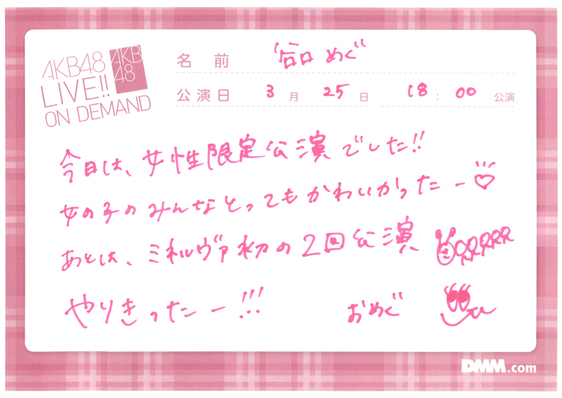 AKB48
LIVE!!
ON DEMAND
AKB
48
名前 谷口 めぐ
公演日 3月 25日 18:00 公演
今日は、女性限定公演でした!!
女の子のみんなとってもかわいかったー♡
あとは、ミネルヴァ初の2回公演
やりきったー!!!
おめぐ
DMM.com